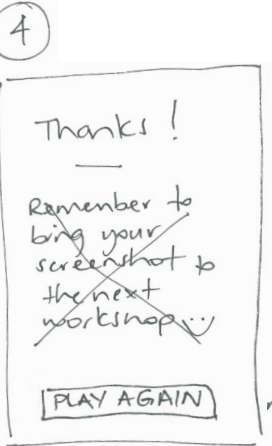 4
Thanks!
Remember to
bring your
screenshot to
the next
workshop
PLAY AGAIN